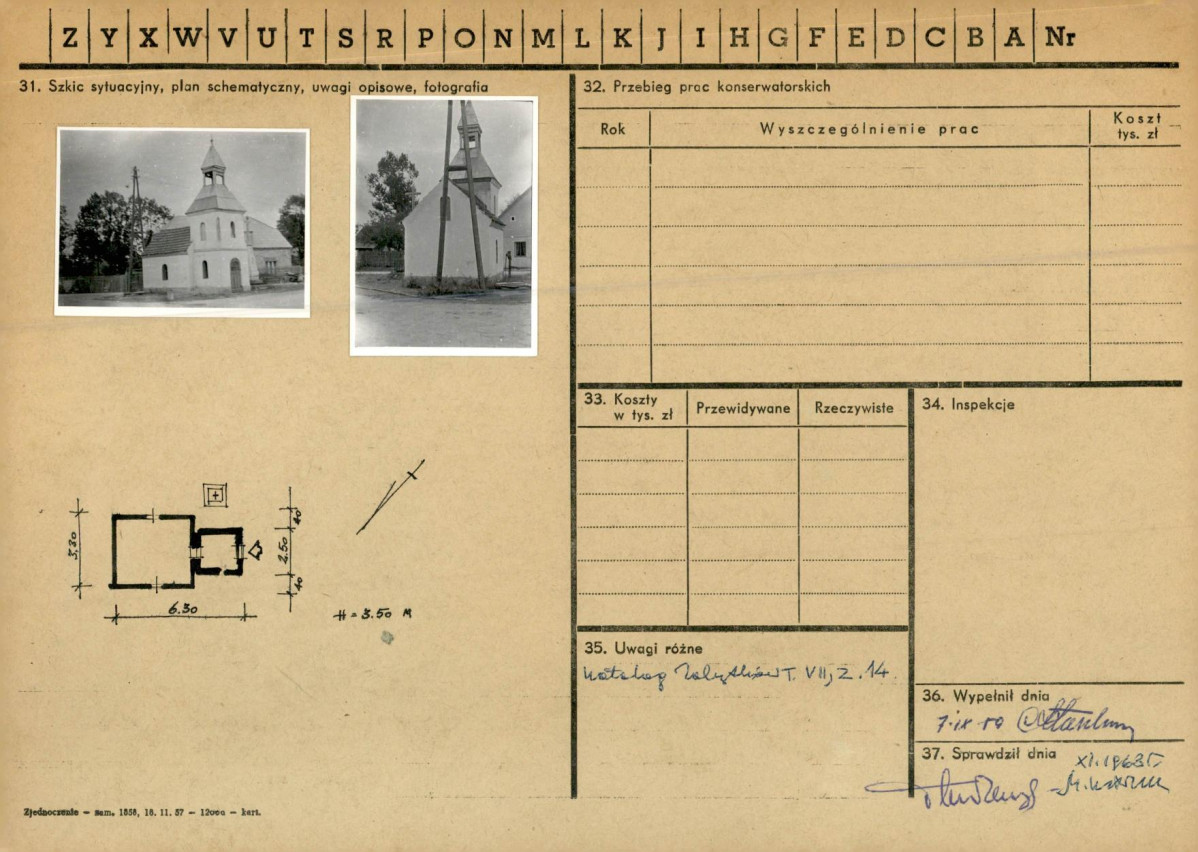 Z Y X W V U T S R P O N M L K J I H G F E D C B A Nr
31. Szkic sytuacyjny, plan schematyczny, uwagi opisowe, fotografia
3,30
6.30
40
2.50
40
H = 3.50 M
32. Przebieg prac konserwatorskich
Rok
Wyszczególnienie prac
Koszt
tys. zł
33. Koszty
w tys. zł
Przewidywane
Rzeczywiste
34. Inspekcje
35. Uwagi różne
Katalog Zabytków T. VII, z. 14.
36. Wypełnił dnia
7.IX.59
37. Sprawdził dnia
XI.1963r.
Zjednoczenie — zam. 1858, 18. 11. 57 — 120oo — kart.